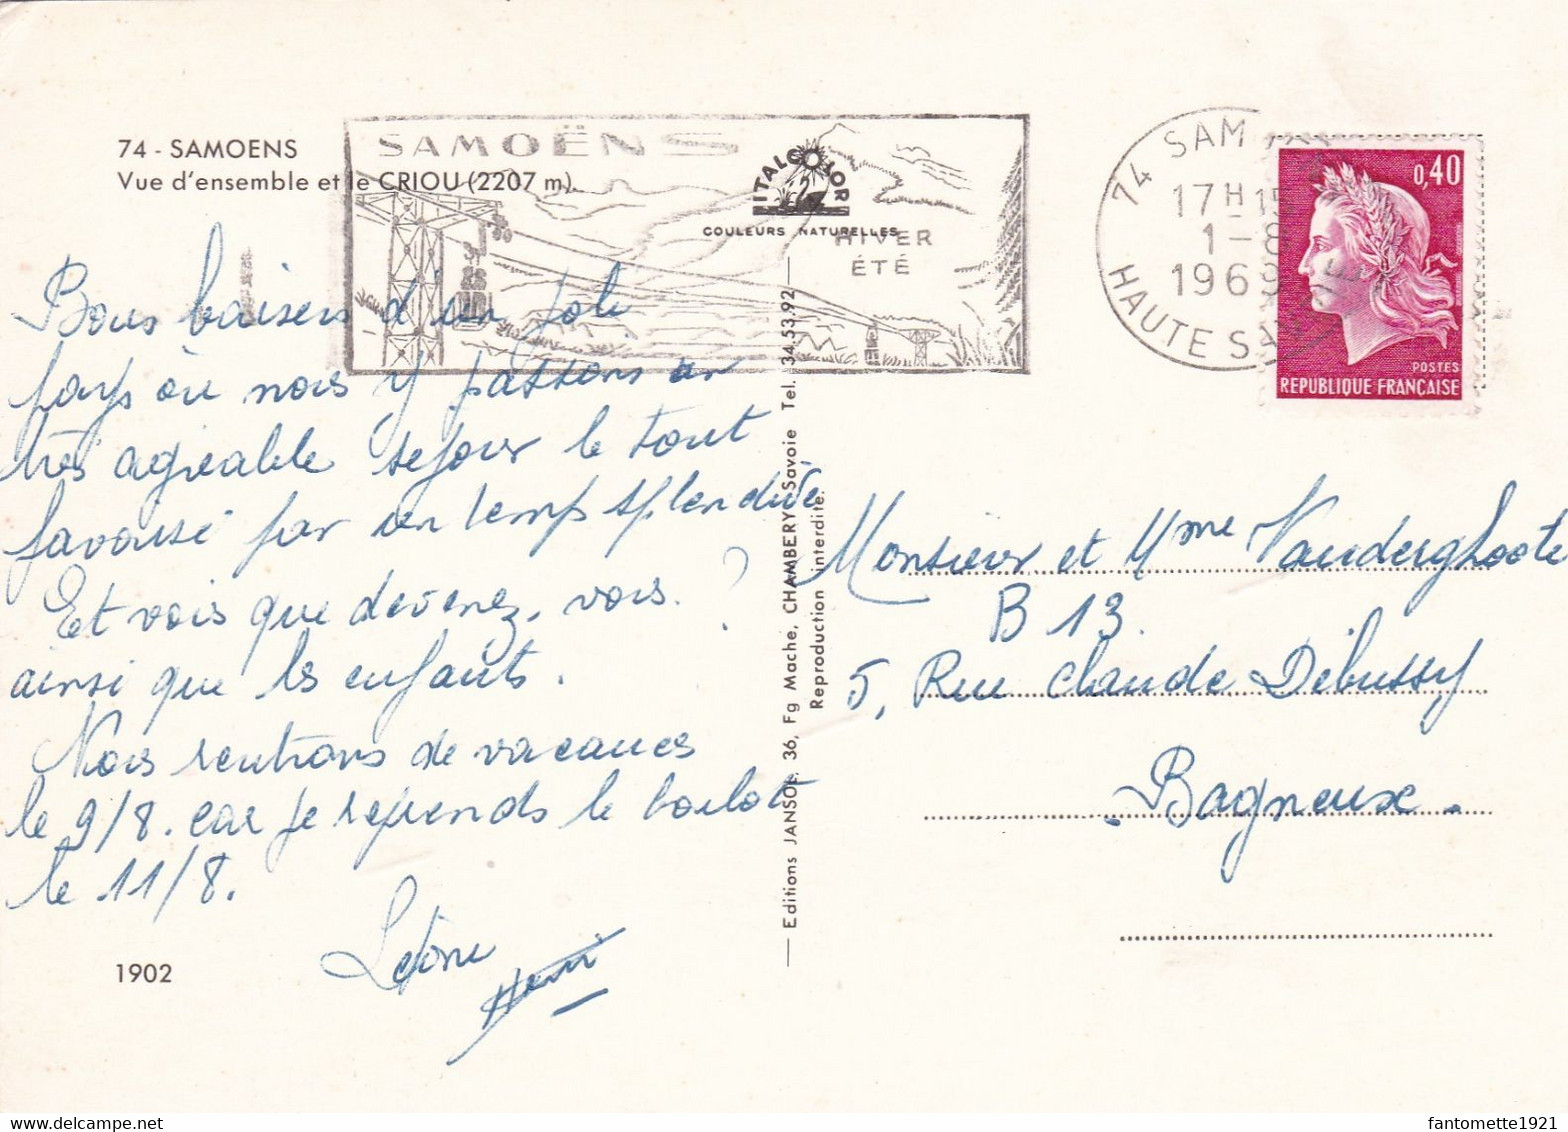 74 - SAMOENS
Vue d'ensemble et le CRIOU (2207 m).
SAMOËNS
ITALCOLOR
COULEURS NATURELLES
HIVER
ÉTÉ
74 SAM
17H15
1-8
1969
HAUTE SAVOIE
0,40
POSTES
REPUBLIQUE FRANÇAISE
Bons baisers d'un joli
pays où nous y passons un
très agréable sejour le tout
favorisé par un temps splendide
Et vous que devenez, vous. ?
ainsi que les enfants.
Nous rentrons de vacances
le 9/8. car je reprends le boulot
le 11/8.
1902
Editions JANSOL 36, Fg Maché, CHAMBERY-Savoie Tel. 34.53.92
Reproduction interdite.
Monsieur et Mme Vanderghoote
B 13.
5, Rue Claude Débussy
- Bagneux -
fantomette1921